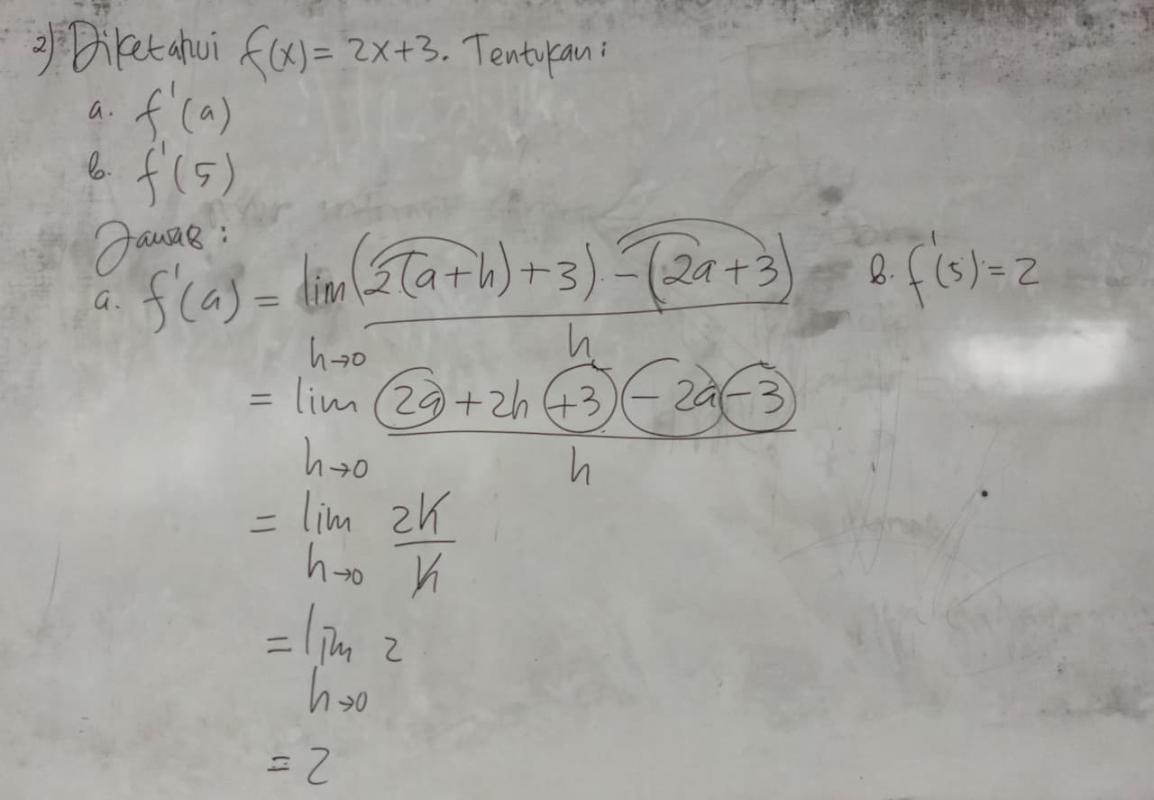 2) Diketahui f(x) = 2x+3. Tentukan:
a. f'(a)
b. f'(5)
Jawab:
a. f'(a) = lim (2(a+h)+3) - (2a+3)
h
h→0
= lim 2a + 2h + 3 - 2a - 3
h
h→0
= lim 2h
h
h→0
= lim 2
h→0
= 2
b. f'(5) = 2